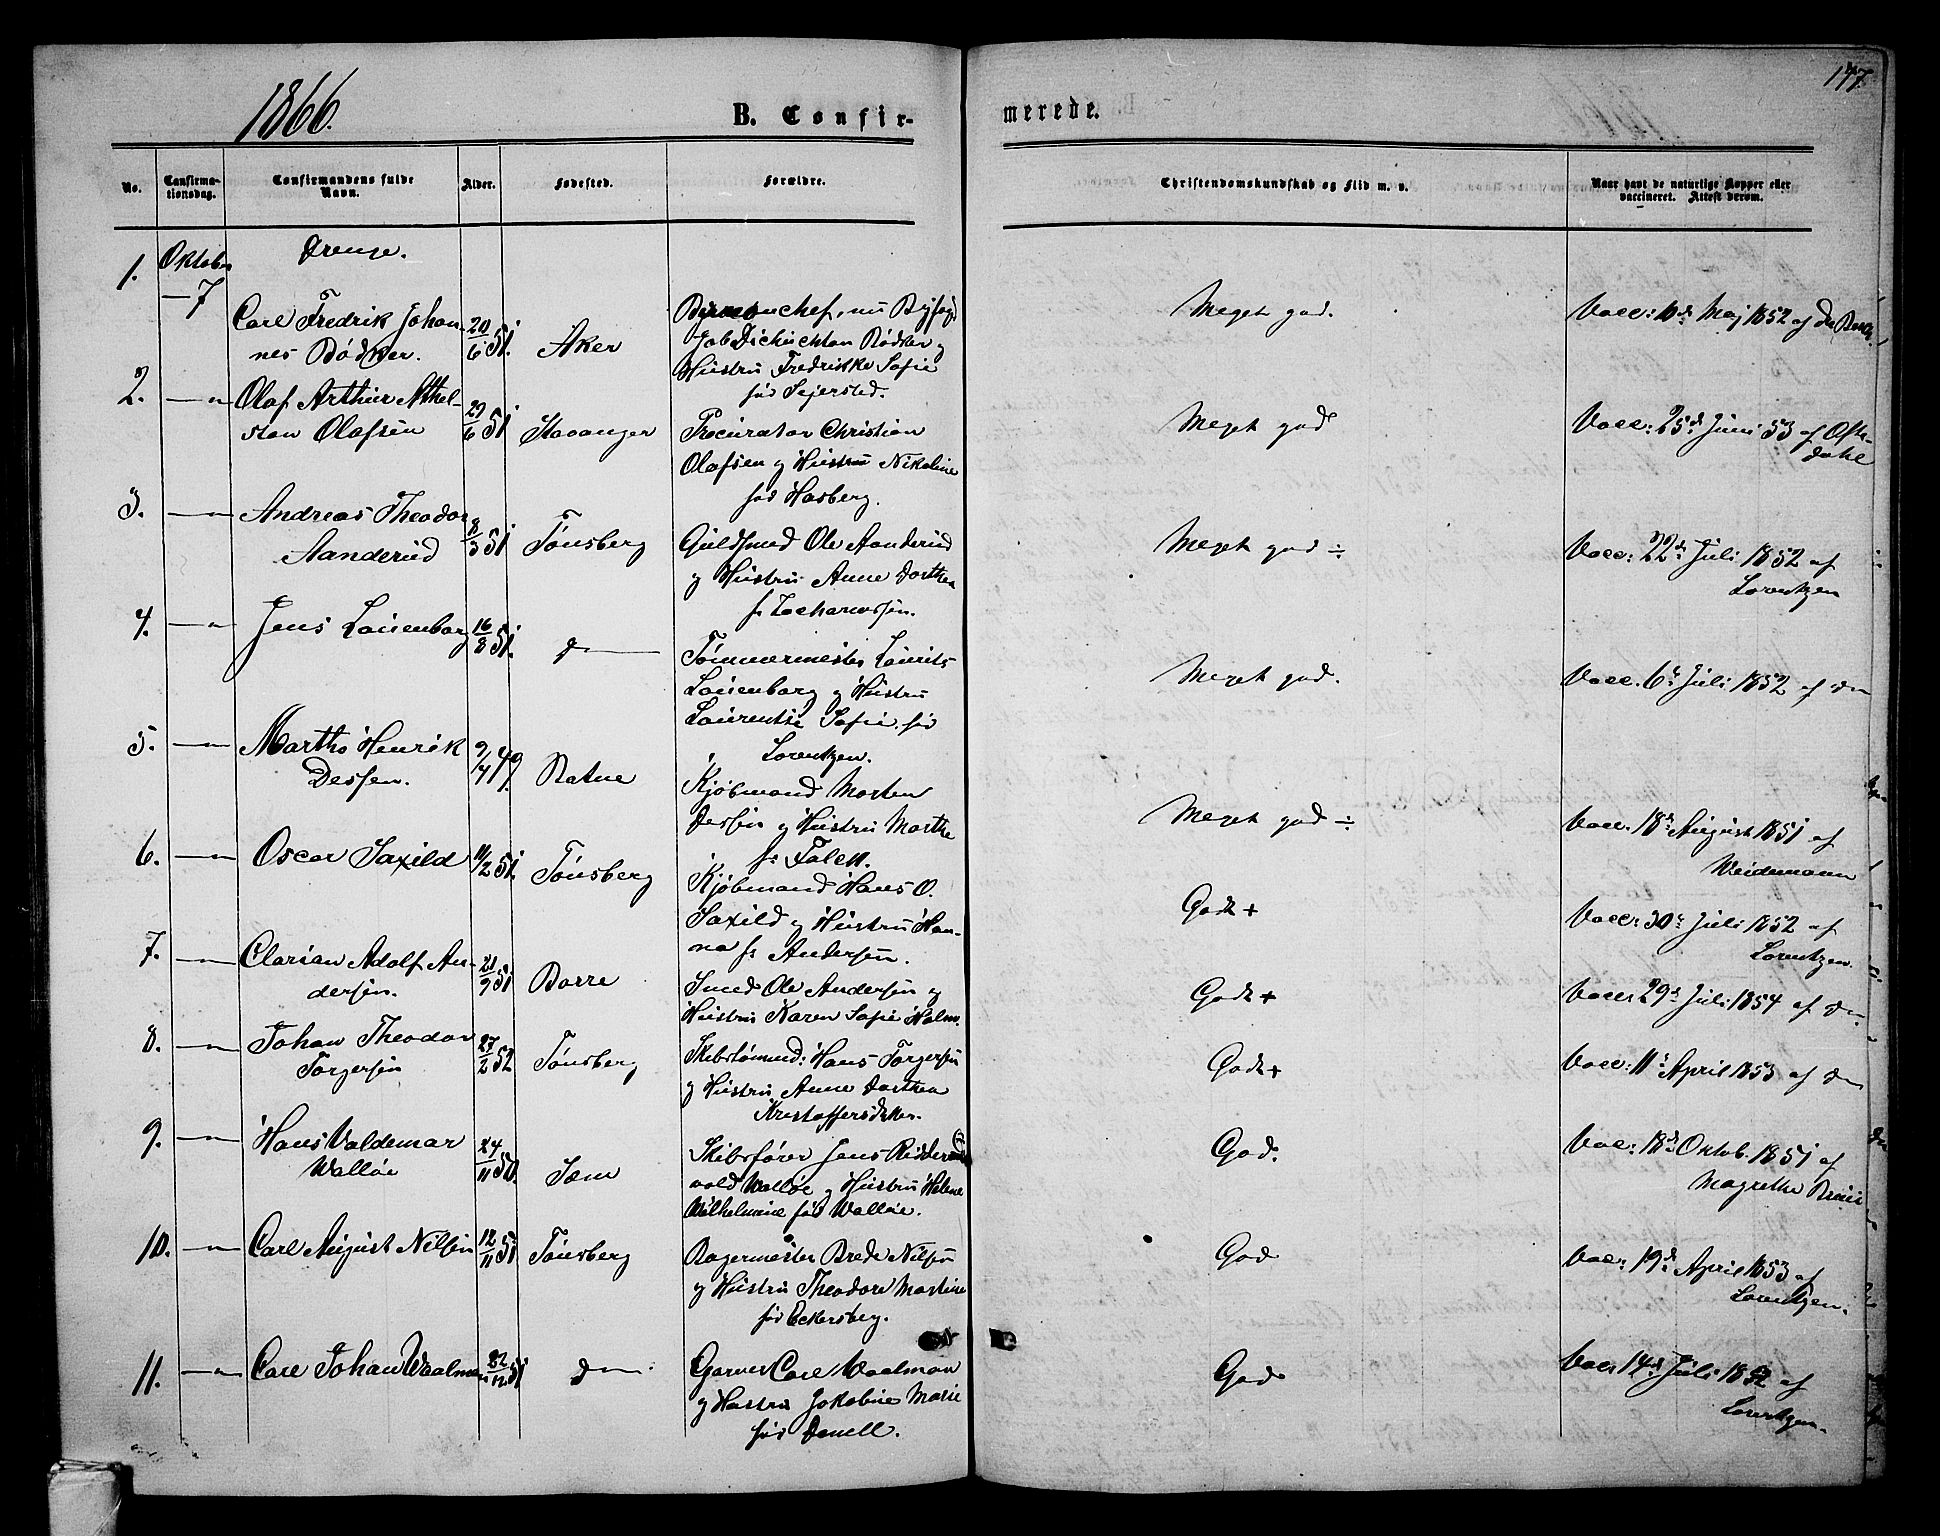 1866.
B. Confir-
merede.
147.
No.
Confirma-
tionsdag.
Confirmandens fulde
Navn.
Alder.
Fødested.
Forældre.
Christendomskundskab og Flid m. v.
Naar havt de naturlige Kopper eller
vaccineret. Attest derom.
Drenge.
1.
Oktober
7
Carl Fredrik Johan-
nes Bødker.
20/6 51.
Aker
chef, nu Byfoged
Job Bødker og
Hustru Fredrikke Sofie
fød Sejersted.
Meget god.
Vacc: 10de Maj 1852 af Dr
2.
—"—
Olaf Arthur Athel-
stan Olafsen
29/6 51
Stavanger
Procurator Christian
Olafsen og Hustru Nikoline
fød Hasberg.
Meget god
Vacc: 25de Juni 53 af Ofte-
dahl
3.
—"—
Andreas Theodor
Aanderud
8/3 51
Tønsberg
Guldsmed Ole Aanderud
og Hustru Anne Dorthea
f: Zachariassen.
Meget god ÷
Vacc: 22de Juli 1852 af
Lorentzen
4.
—"—
Jens Lauenborg
16/8 51.
d——
Tømmermester Laurits
Lauenborg og Hustru
Laurentse Sofie, fød
Lorentzen.
Meget god.
Vacc. 6te Juli 1852 af do
5.
—"—
Marths Henrik
Dessen.
9/4 49.
Ratne
Kjøbmand Morten
Dessen og Hustru Marthe
f: Falck.
Meget god ÷
Vacc. 18de August 1851 af
Weidemann
6.
—"—
Oscar Saxild
11/2 51.
Tønsberg
Kjøbmand Hans O.
Saxild og Hustru Han-
na f: Andersen.
Godt +
Vacc: 30te Juli 1852 af
Lorentzen.
7.
—"—
Clarian Adolf An-
dersen.
21/9 51
Borre
Smed Ole Andersen og
Hustru Karen Sofie Holm.
Godt +
Vacc: 29de Juli 1854 af do.
8.
—"—
Johan Theodor
Torgersen
27/2 52
Tønsberg
Skibstømmd: Hans Torgersen
og Hustru Anne Dorthea
Kristoffersdatter.
Godt +
Vacc: 11te April 1853 af do
9.
—"—
Hans Valdemar
Walløe
24/11 50.
Sæm
Skibsfører Jens Ridder
vold Walløe og Hustru Helene
Wilhelmine fød Walløe.
God.
Vac: 18de Oktob. 1851 af
Magrethe
10.
—"—
Carl August Nilsen
12/11 51
Tønsberg
Bagermester Brede Nilsen
og Hustru Theodore Martine
fød Eckersberg.
God
Vac: 19de April 1853 af
Lorentzen.
11.
—"—
Carl Johan Waalman
22/12 51
d—"—
Garver Carl Waalman
og Hustru Jakobine Marie
fød Donell.
God
Vac: 14de Juli 1852 af
Lorentzen.